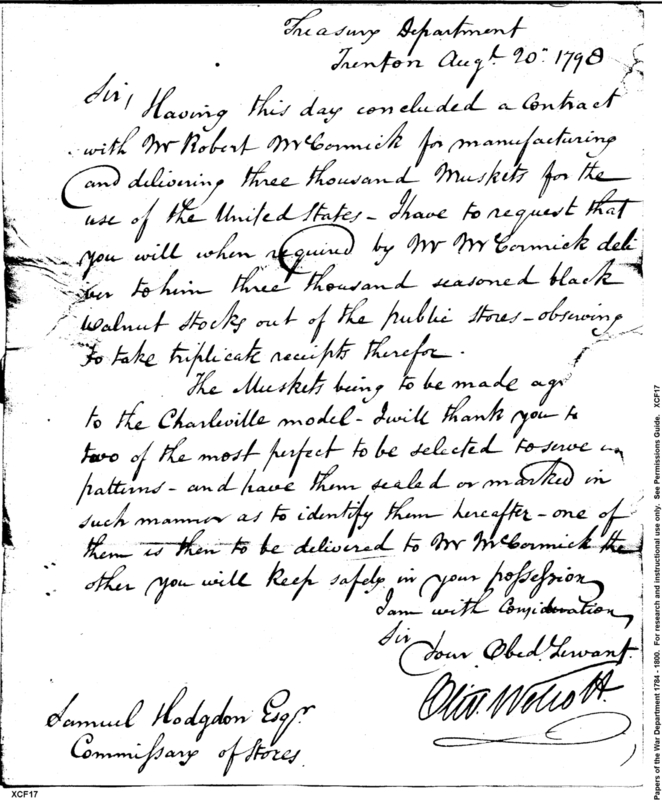 Treasury Department
Trenton Augt. 20th 1798
Sir,
Having this day concluded a Contract
with Mr Robert McCormick for manufacturing
and delivering three thousand Muskets for the
use of the United States - I have to request that
you will when required by Mr McCormick deli
ver to him three thousand seasoned black
Walnut Stocks out of the public stores - observing
to take triplicate receipts therefor.
The Muskets being to be made agr
to the Charleville model - I will thank you to
two of the most perfect to be selected to serve as
patterns - and have them sealed or marked in
such manner as to identify them hereafter - one of
them is then to be delivered to Mr McCormick the
other you will keep safely in your possession
I am with Consideration
Sir
Your Obed. Servant.
Oliv. Wolcott.
Samuel Hodgdon Esqr.
Commissary of Stores.
XCF17
Papers of the War Department 1784 - 1800. For research and instructional use only. See Permissions Guide. XCF17